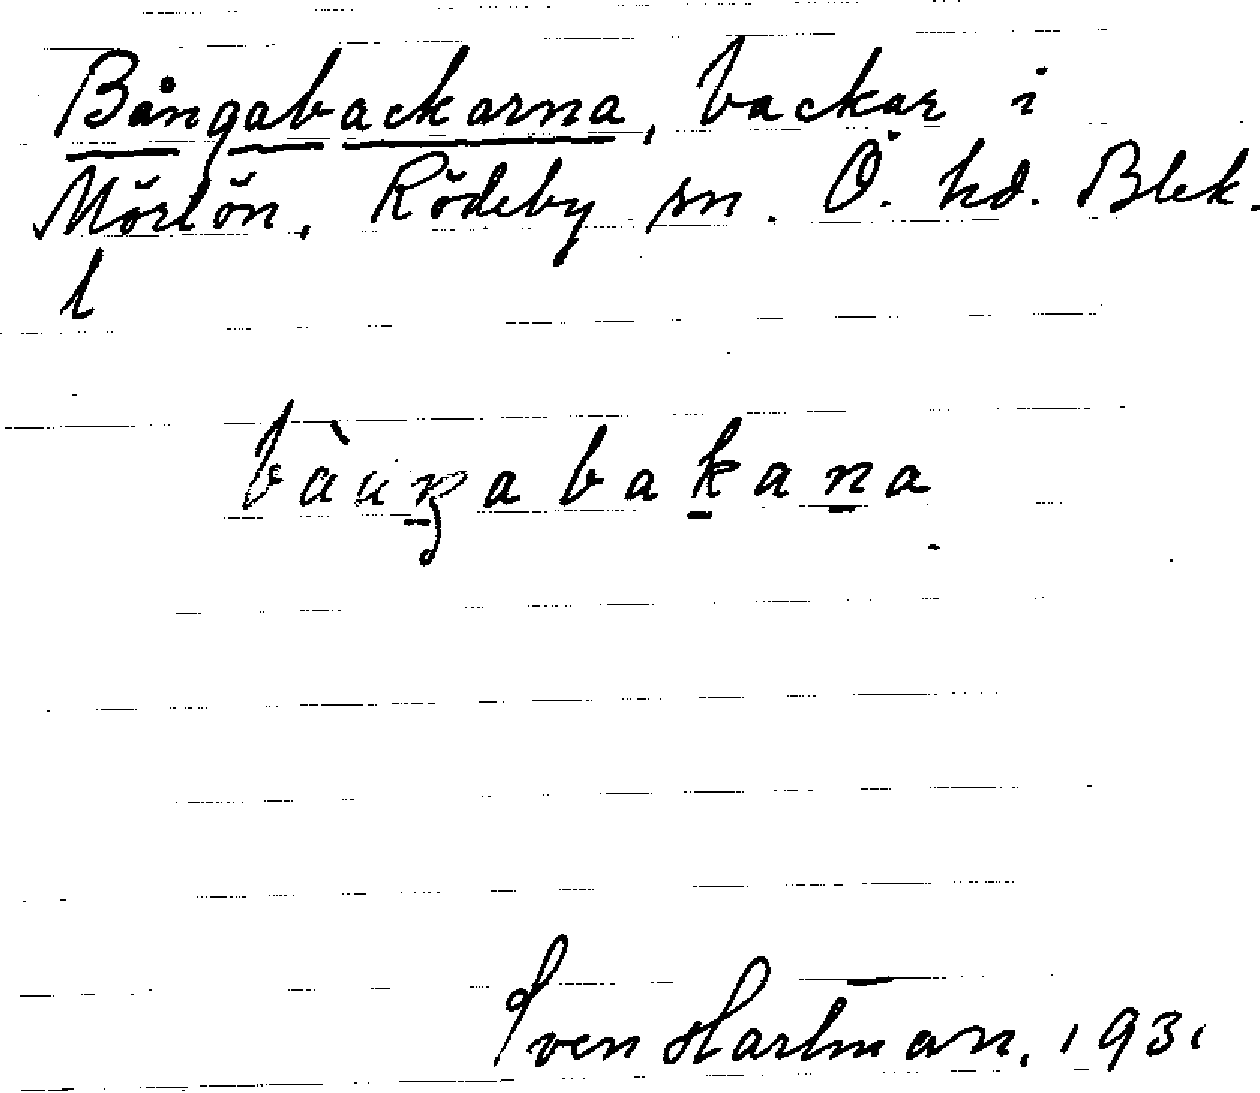 Bångabackarna, backar i
Mörtön. Rödeby sn. Ö. hd. Blek.
l
bàuŋabakana
Sven Hartman. 1931